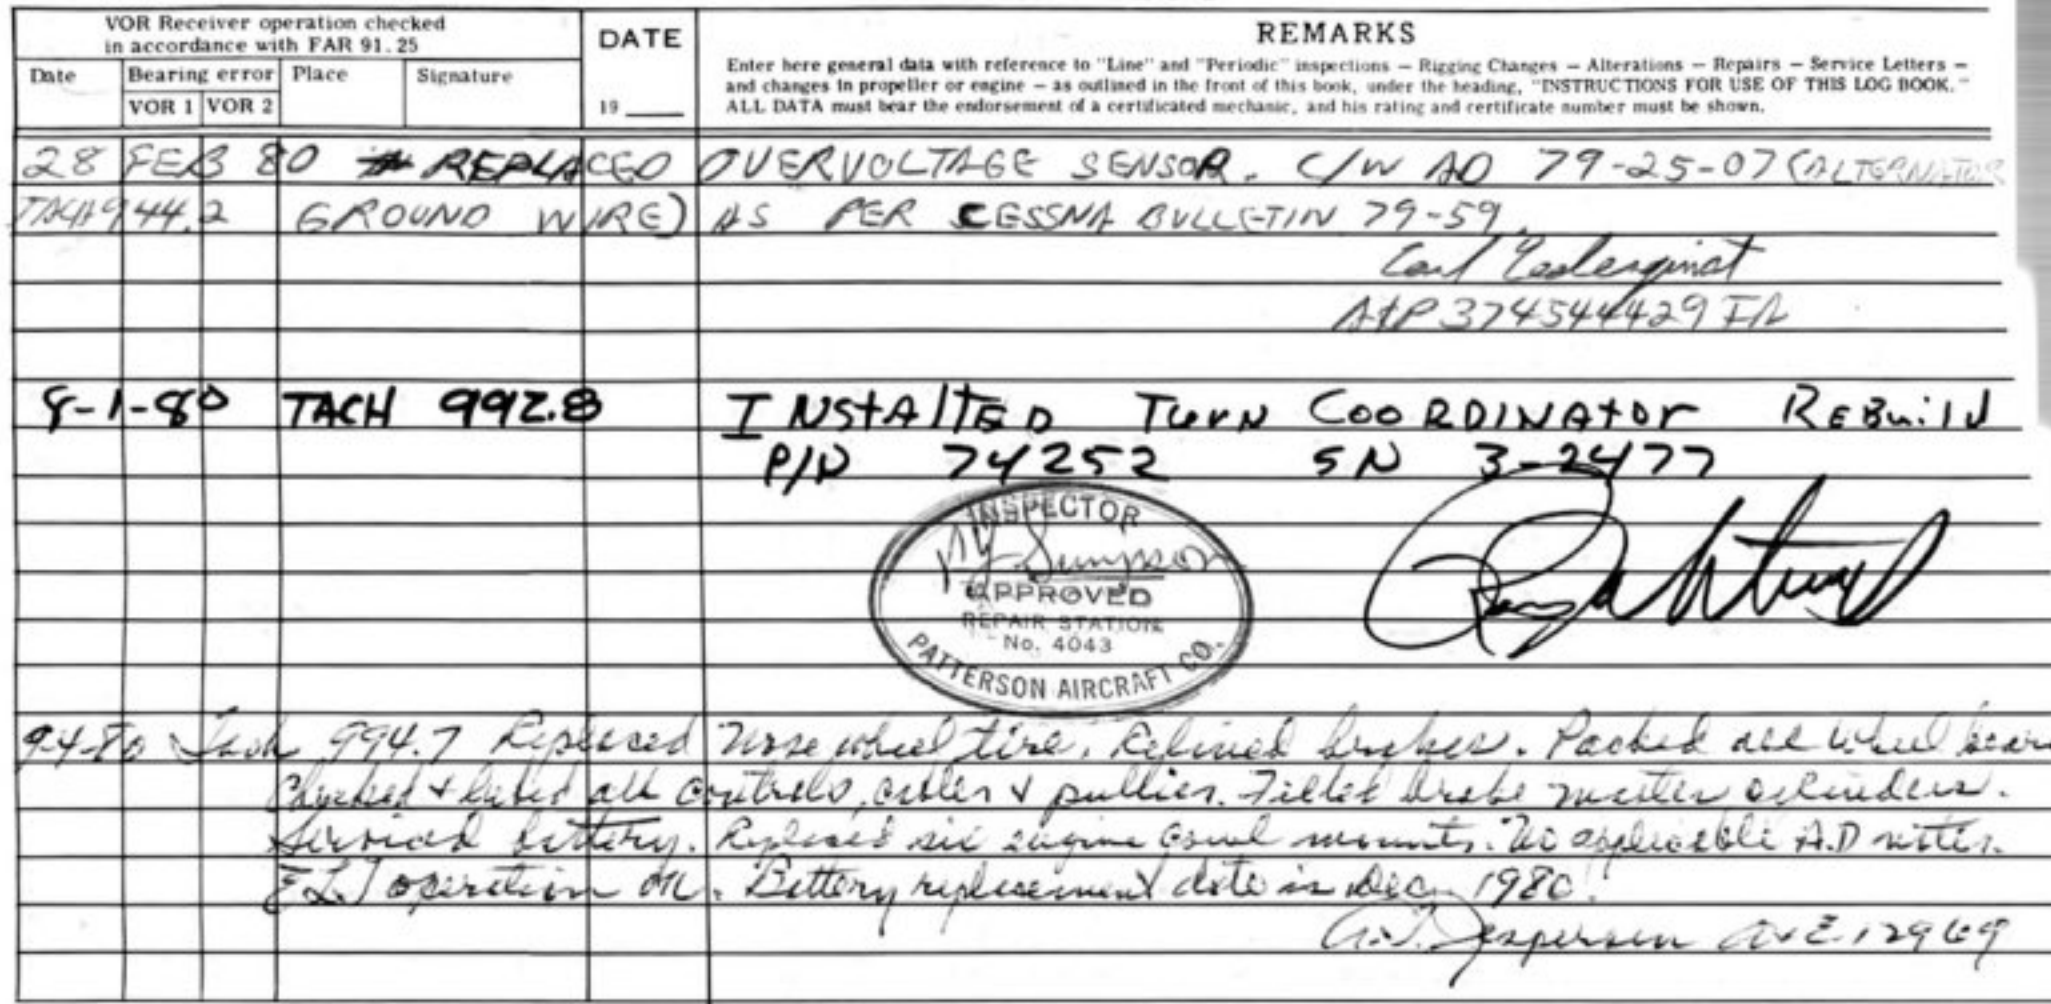 VOR Receiver operation checked
in accordance with FAR 91.25
DATE
REMARKS
Date
Bearing error
Place
Signature
VOR 1 VOR 2
19
Enter here general data with reference to "Line" and "Periodic" inspections — Rigging Changes — Alterations — Repairs — Service Letters —
and changes in propeller or engine — as outlined in the front of this book, under the heading, "INSTRUCTIONS FOR USE OF THIS LOG BOOK."
ALL DATA must bear the endorsement of a certificated mechanic, and his rating and certificate number must be shown.
28 FEB 80 REPLACED OVERVOLTAGE SENSOR. C/W AD 79-25-07 (ALTERNATOR
TACH 944.2 GROUND WIRE) AS PER CESSNA BULLETIN 79-59.
Carl
A&P 374544429 IA
8-1-80 TACH 992.8 INStAllED TURN COORDINAtor REBuild
P/N 74252 SN 3-2477
INSPECTOR
Simpson
APPROVED
REPAIR STATION
No. 4043
PATTERSON AIRCRAFT CO.
9-4-80 Tach 994.7 Replaced nose wheel tire. Relined brakes. Packed all wheel bear
Checked & lubed all controls, cables & pullies. Filled brake master cylinders.
Serviced battery. Replaced six engine cowl mounts. No applicable A.D notes.
ELT operation OK. Battery replacement date is Dec 1980.
Jespersen A&E 12969